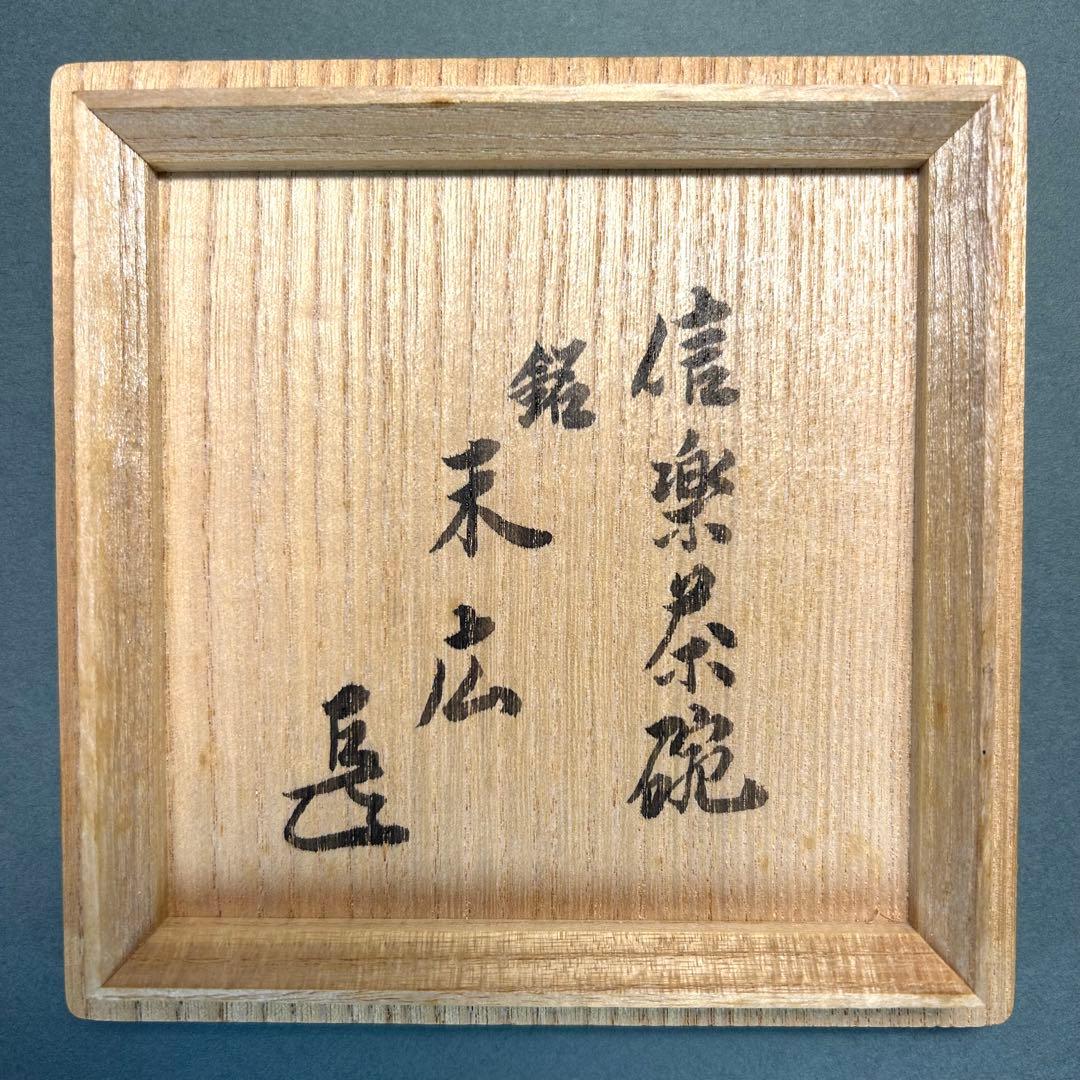 信楽茶碗
銘
末広